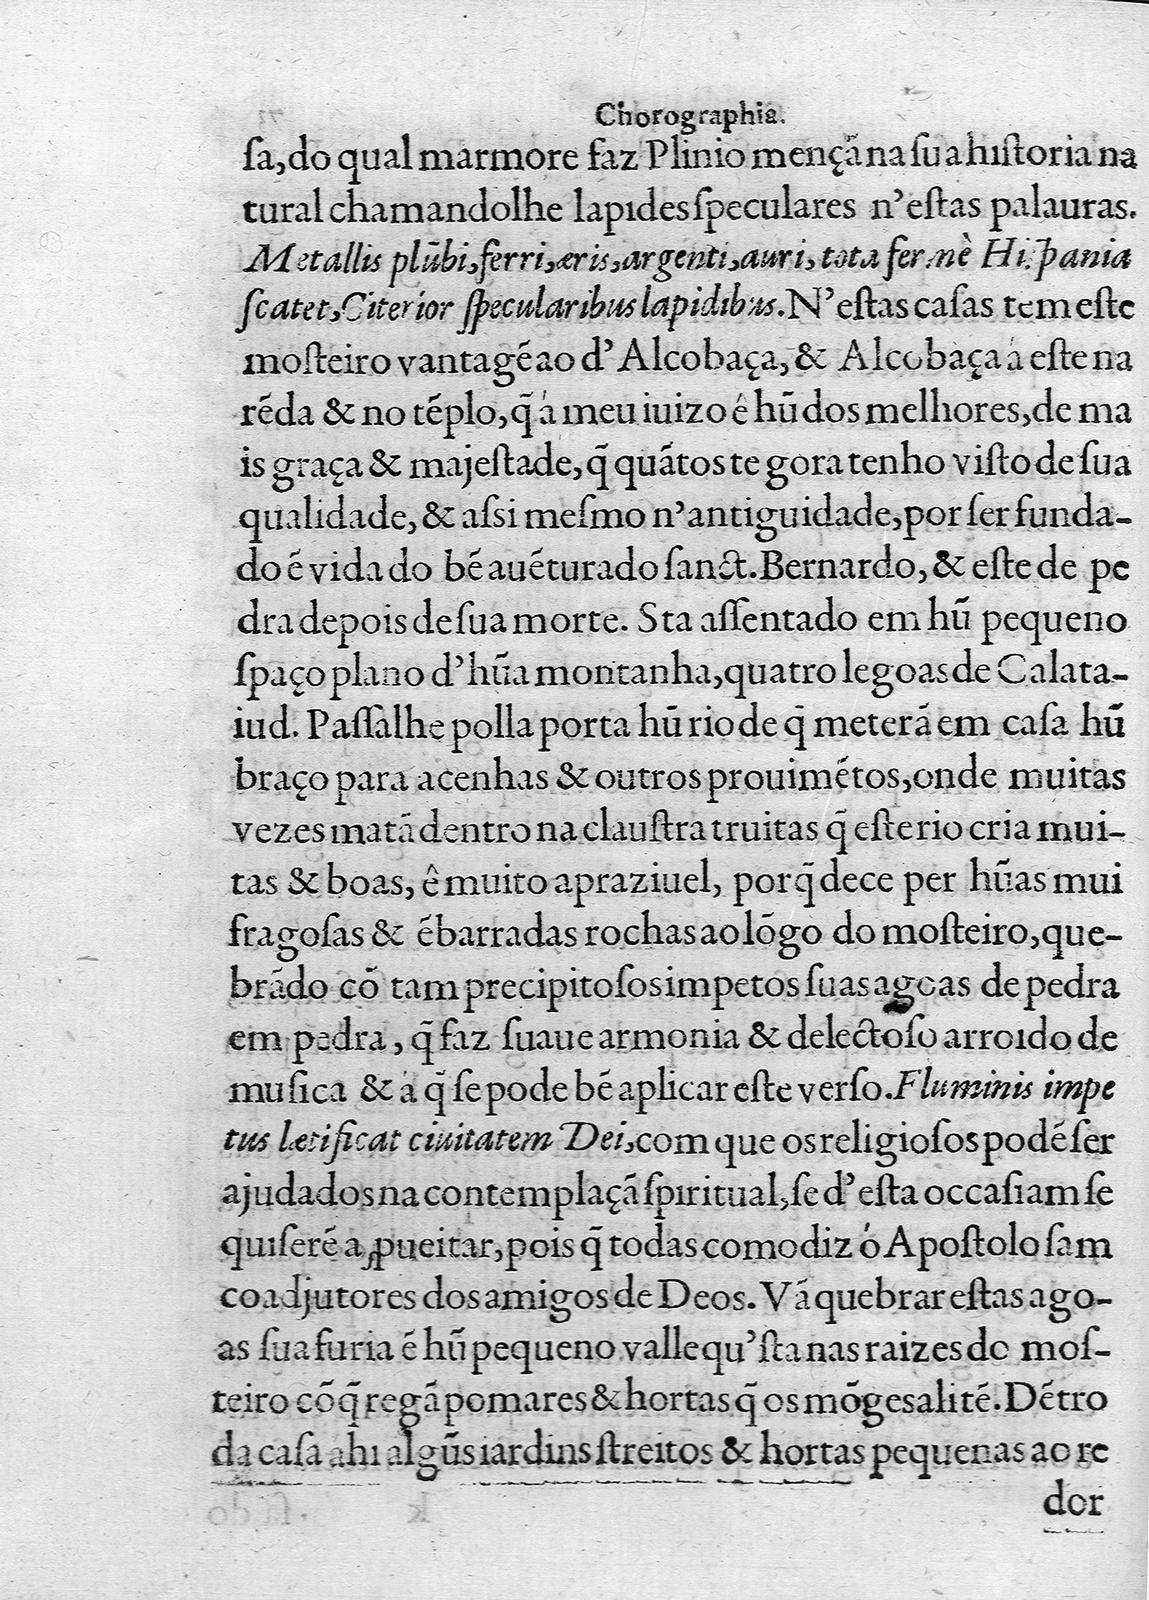 Chorographia.
ſa, do qual marmore faz Plinio mençã na ſua hiſtoria na
tural chamandolhe lapides ſpeculares n'eſtas palauras.
Metallis plũbi, ferri, æris, argenti, auri, tota fermè Hiſpania
ſcatet, Citerior ſpecularibus lapidibus. N'eſtas caſas tem eſte
moſteiro vantagẽ ao d'Alcobaça, & Alcobaça á eſte na
rẽda & no tẽplo, q̃ á meu iuizo é hũ dos melhores, de ma
is graça & majeſtade, q̃ quãtos te gora tenho viſto de ſua
qualidade, & aſsi meſmo n'antiguidade, por ſer funda-
do ẽ vida do bẽauẽturado ſanct. Bernardo, & eſte de pe
dra depois de ſua morte. Sta aſſentado em hũ pequeno
ſpaço plano d'hũa montanha, quatro legoas de Calata-
iud. Paſſalhe polla porta hũ rio de q̃ meterã em caſa hũ
braço para acenhas & outros prouimẽtos, onde muitas
vezes matã dentro na clauſtra truitas q̃ eſte rio cria mui-
tas & boas, ê muito apraziuel, porq̃ dece per hũas mui
fragoſas & ẽbarradas rochas ao lõgo do moſteiro, que-
brãdo cõ tam precipitoſos impetos ſuas agoas de pedra
em pedra, q̃ faz ſuaue armonia & delectoſo arroido de
muſica & á q̃ ſe pode bẽ aplicar eſte verſo. Fluminis impe
tus lætificat ciuitatem Dei, com que os religioſos podẽ ſer
ajudados na contemplaçã ſpiritual, ſe d'eſta occaſiam ſe
quiſerẽ aꝓueitar, pois q̃ todas como diz ó Apoſtolo ſam
coadjutores dos amigos de Deos. Vã quebrar eſtas ago-
as ſua furia ẽ hũ pequeno valle qu'ſta nas raizes do moſ-
teiro cõ q̃ regã pomares & hortas q̃ os mõges alitẽ. Dẽtro
da caſa ahi algũs iardins ſtreitos & hortas pequenas ao re
dor